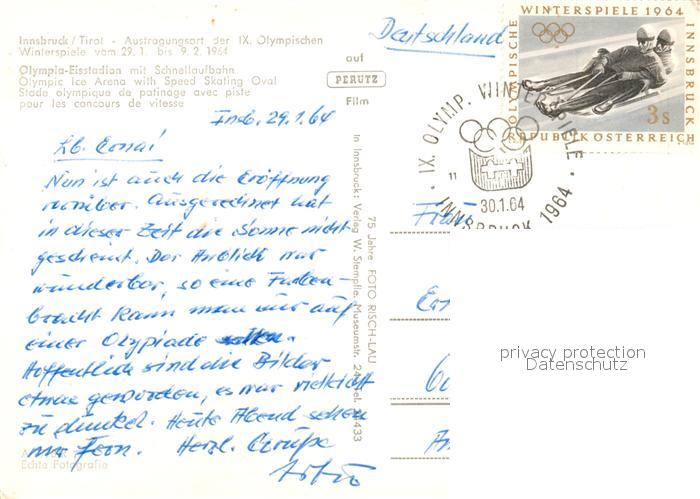 Innsbruck/Tirol - Austragungsort der IX. Olympischen
Winterspiele vom 29. 1. bis 9. 2. 1964
Olympia-Eisstadion mit Schnellaufbahn
Olympic Ice Arena with Speed Skating Oval
Stade olympique de patinage avec piste
pour les concours de vitesse
auf
PERUTZ
Film
Deutschland
OLYMPISCHE WINTERSPIELE 1964 INNSBRUCK
3 s
REPUBLIK ÖSTERREICH
IX. OLYMP. WINTERSPIELE
11
30.1.64
INNSBRUCK 1964
Insb. 29.1.64
Lb.
Nun ist auch die Eröffnung
vorüber. Ausgerechnet hat
in dieser Zeit die Sonne nicht
gescheint. Der Anblick war
wunderbar, so eine Farben-
bracht kann man nur auf
einer Olypiade
Hoffentlich sind die Bilder
etwas geworden, es war vielleicht
zu dunkel. Heute Abend sehen
wir Fern. Herzl. Grüße
Frau
75 Jahre FOTO RISCH-LAU
In Innsbruck: Verlag W. Stempfle, Museumstr. 24
Echte Fotografie
privacy protection
Datenschutz